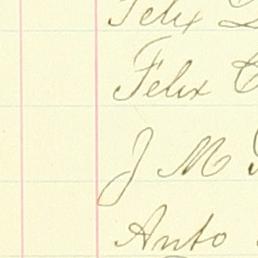 Felix
Felix C
J M
Anto